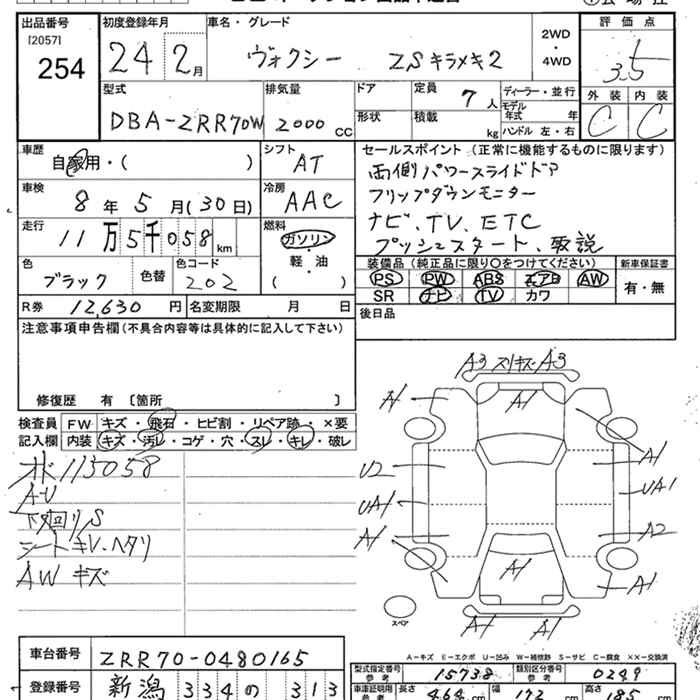 出品番号
[2057]
254
初度登録年月
24 2月
車名・グレード
ヴォクシー ZSキラメキ2
2WD
・
4WD
評価点
3.5
外装 内装
C C
型式
DBA-ZRR70W
排気量
2000 CC
ドア
形状
定員 7 人
積載 kg
ディーラー・並行
モデル年式 年
ハンドル 左・右
車歴
自家用・( )
シフト
AT
車検
8年 5月(30日)
冷房
AAC
走行
11万5千058km
燃料
ガソリン
軽・油
( )
色
ブラック
色替
色コード
202
R券 12,630円
名変期限 月 日
セールスポイント(正常に機能するものに限ります)
両側パワースライドドア
フリップダウンモニター
ナビ、TV、ETC
プッシュスタート、取説
装備品(純正品に限り○をつけてください)
PS PW ABS エアB AW
SR ナビ TV カワ
新車保証書
有・無
後日品
注意事項申告欄(不具合内容等は具体的に記入して下さい)
修復歴 有 〔箇所 〕
検査員記入欄
FW キズ・飛石・ヒビ割・リペア跡・×要
内装 キズ・汚レ・コゲ・穴・スレ・キレ・破レ
オド 115058
A・U
下回りS
シートキレ・ヘタリ
AW キズ
A3 スリキズ A3
A1 A1
A1
U2
UA1 UA1
A1 A2
A1 A1
A1 A1
スペア
A－キズ E－エクボ U－凹み W－補修跡 S－サビ C－腐食 ××－交換済
車台番号 ZRR70-0480165
登録番号 新潟 334 の 313
型式指定番号 参考 15738
類別区分番号 参考 0249
車庫証明用 参考 長さ 464 cm 幅 172 cm 高さ 185 cm